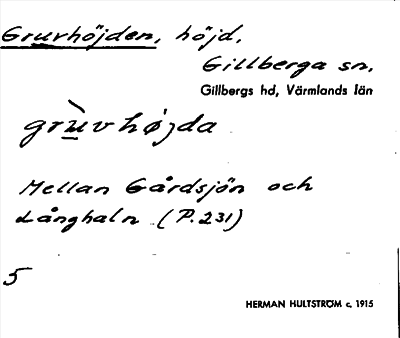 Gruvhöjden, höjd.
Gillberga sn.
Gillbergs hd, Värmlands län
grùvhöjda
Mellan Gårdsjön och
Långhaln (P. 231)
5
HERMAN HULTSTRÖM c. 1915